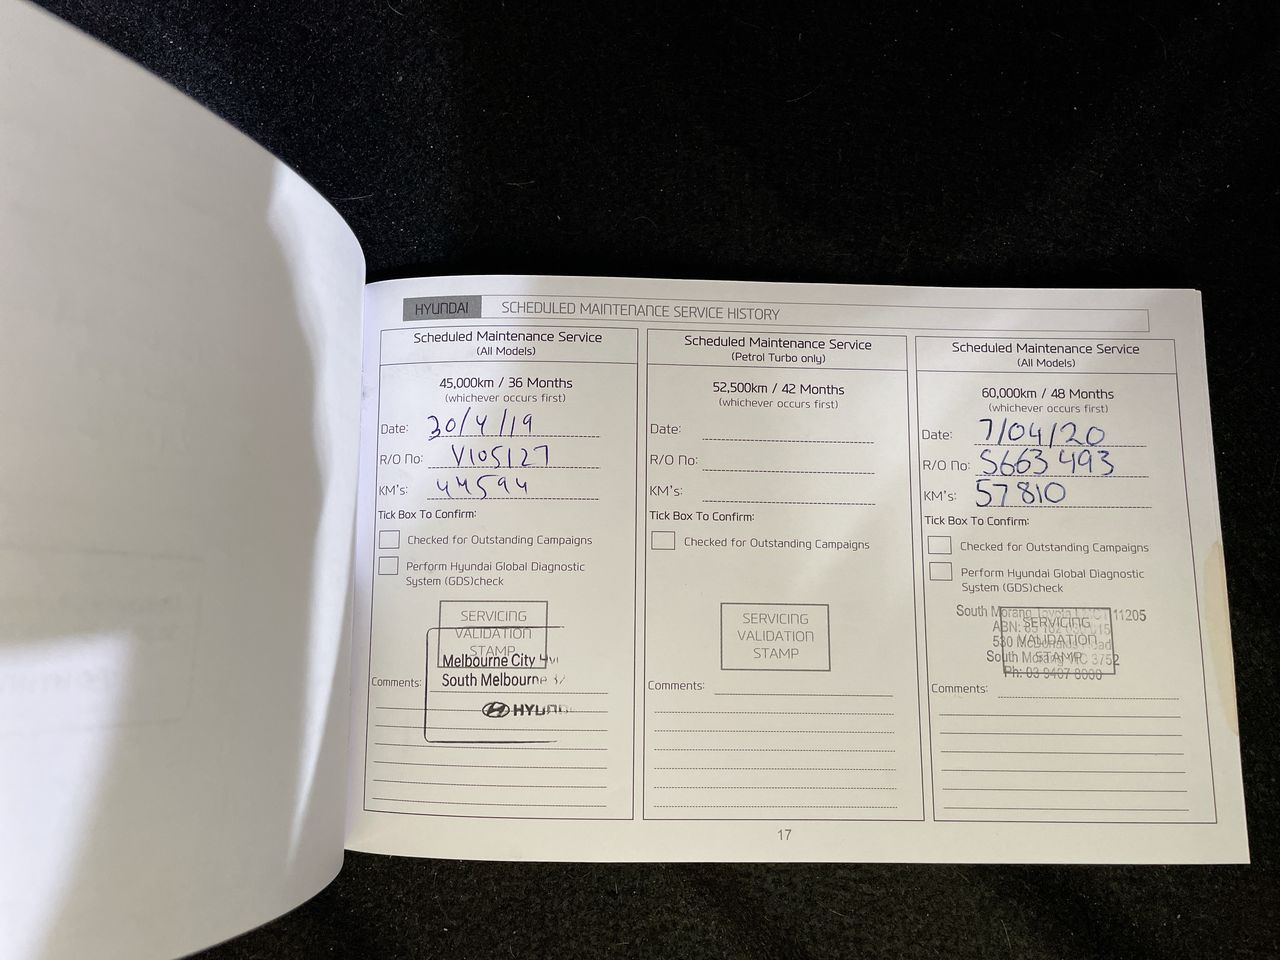 HYUNDAI SCHEDULED MAINTENANCE SERVICE HISTORY
Scheduled Maintenance Service
(All Models)
45,000km / 36 Months
(whichever occurs first)
Date: 30/4/19
R/O No: V105127
KM's: 44594
Tick Box To Confirm:
Checked for Outstanding Campaigns
Perform Hyundai Global Diagnostic
System (GDS)check
SERVICING
VALIDATION
STAMP
Melbourne City
South Melbourne
HYUNDAI
Comments:
Scheduled Maintenance Service
(Petrol Turbo only)
52,500km / 42 Months
(whichever occurs first)
Date:
R/O No:
KM's:
Tick Box To Confirm:
Checked for Outstanding Campaigns
SERVICING
VALIDATION
STAMP
Comments:
Scheduled Maintenance Service
(All Models)
60,000km / 48 Months
(whichever occurs first)
Date: 7/04/20
R/O No: S663493
KM's: 57810
Tick Box To Confirm:
Checked for Outstanding Campaigns
Perform Hyundai Global Diagnostic
System (GDS)check
SERVICING
VALIDATION
STAMP
South Morang Toyota 11205
ABN:
530 McDonalds Road
South Morang VIC 3752
Ph: 03 9407 8000
Comments:
17